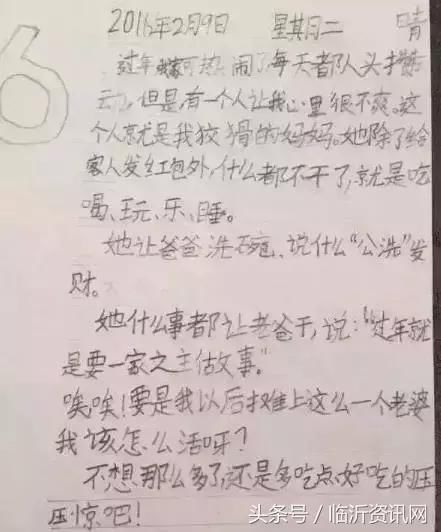 6
2016年2月9日 星期二 晴
过年我家可热闹了,每天都队人头攒
动,但是有一个人让我心里很不爽。这
个人就是我狡猾的妈妈。她除了给
客人发红包外,什么都不干了,就是吃
喝、玩、乐、睡。
她让爸爸洗碗、说什么“公洗”发
财。
她什么事都让老爸干,说:“过年就
是要一家之主估故事。”
唉唉!要是我以后摊上这么一个老婆
我该怎么活呀?
不想那么多了,还是多吃点好吃的压
压惊吧!
头条号/临沂资讯网